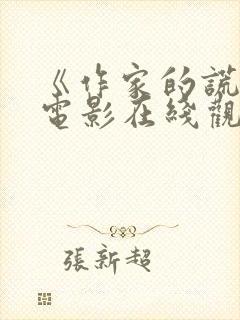 《作家的謊
電影在綫觀
張新超